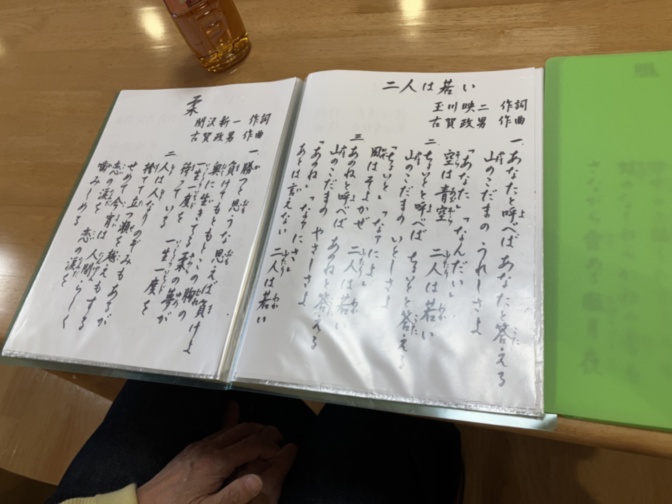 二人は若い
玉川映二 作詞
古賀政男 作曲
一 あなたと呼べば あなたと答える
山のこだまの うれしさよ
「あなた」「なんだい」
空は青空 二人は若い
二 ちょいと呼べば ちょいと答える
山のこだまの いとしさよ
「ちょいと」「なァによ」
風はそよかぜ 二人は若い
三 あのねと呼べば あのねと答える
山のこだまの やさしさよ
「あのね」「なァにさ」
あとは言えない 二人は若い
柔
関沢新一 作詞
古賀政男 作曲
一 勝つと思うな 思えば負けよ
負けてもともと この胸の
奥に生きてる 柔の夢が
一生一度を
待っている 一生一度を
二 人は人なり のぞみもあるが
捨てて立つ瀬を 越えもする
せめて今宵は 人間らしく
恋の涙を
噛みしめる 恋の涙を